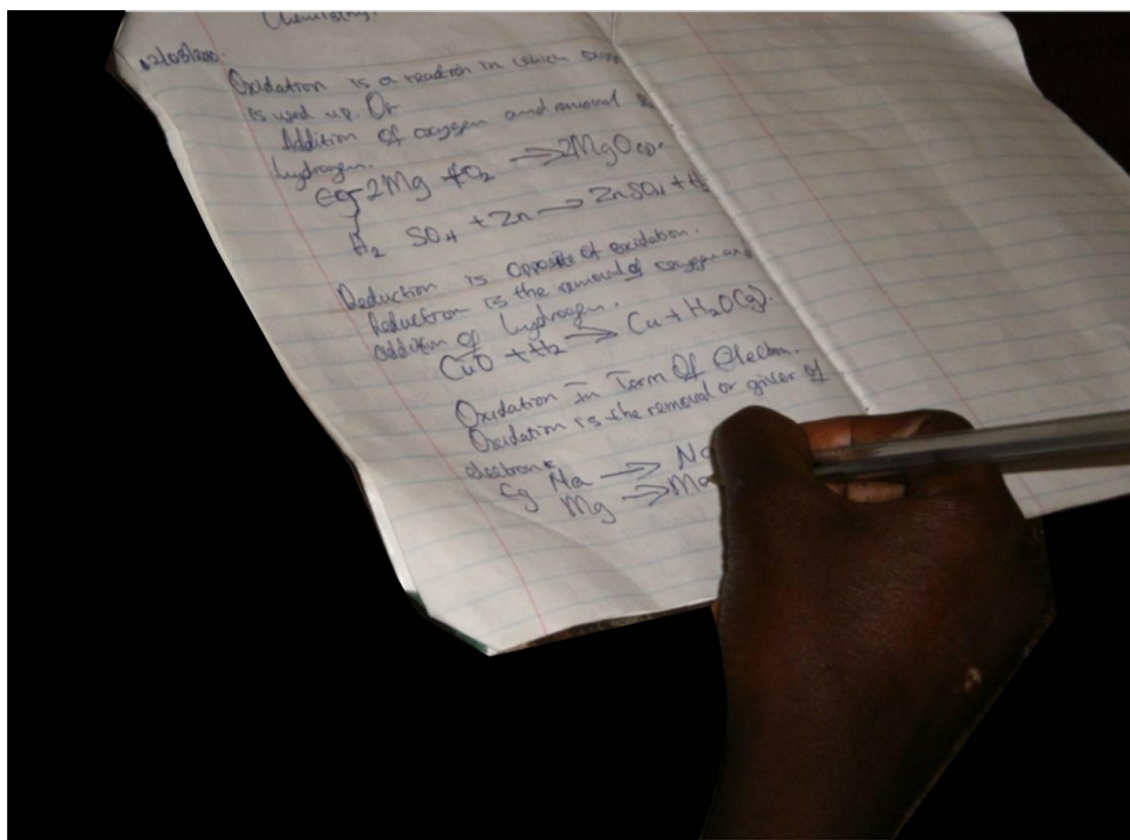 Chemistry.
Oxidation is a reaction in which
is used up. Or
Addition of oxygen and removal
hydrogen.
Eg 2Mg + O₂ → 2MgO(s).
H₂ SO₄ + Zn → ZnSO₄ + H₂
Reduction is opposite of oxidation.
Reduction is the removal of oxygen and
addition of hydrogen.
CuO + H₂ → Cu + H₂O(g).
Oxidation In Term Of Electron.
Oxidation is the removal or giver of
electron
Eg Na → Na
Mg → M